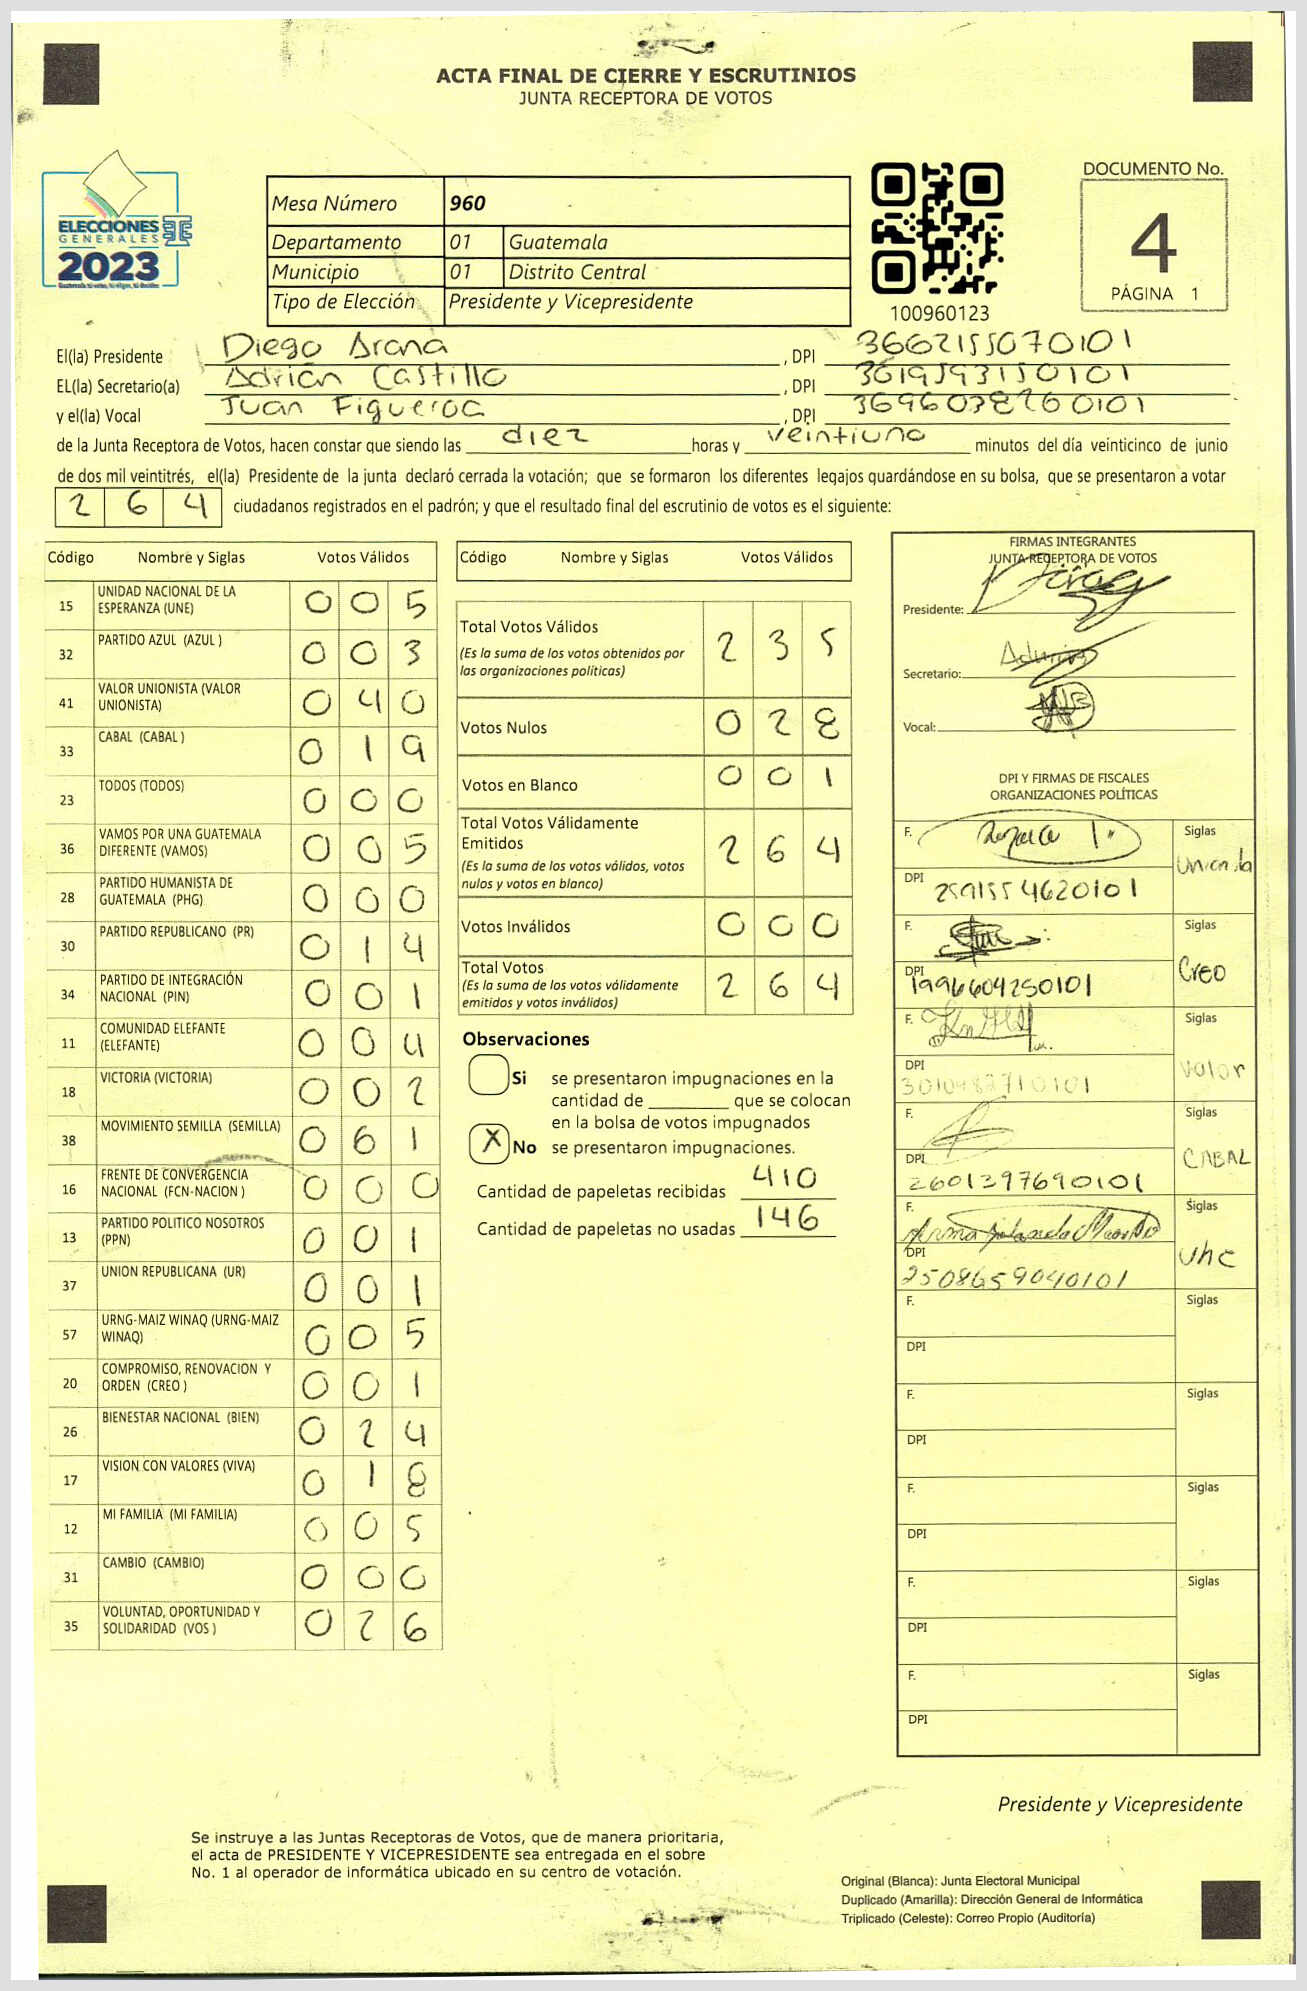 ACTA FINAL DE CIERRE Y ESCRUTINIOS
JUNTA RECEPTORA DE VOTOS
ELECCIONES
GENERALES
2023
Mesa Número 960
Departamento 01 Guatemala
Municipio 01 Distrito Central
Tipo de Elección Presidente y Vicepresidente
100960123
DOCUMENTO No.
4
PÁGINA 1
El(la) Presidente Diego Arana, DPI 3662155070101
EL(la) Secretario(a) Adrián Castillo, DPI 3619593150101
y el(la) Vocal Juan Figueroa, DPI 3696038260101
de la Junta Receptora de Votos, hacen constar que siendo las diez horas y veintiuno minutos del día veinticinco de junio
de dos mil veintitrés, el(la) Presidente de la junta declaró cerrada la votación; que se formaron los diferentes legajos guardándose en su bolsa, que se presentaron a votar
2 6 4 ciudadanos registrados en el padrón; y que el resultado final del escrutinio de votos es el siguiente:
Código Nombre y Siglas Votos Válidos
15 UNIDAD NACIONAL DE LA ESPERANZA (UNE) 0 0 5
32 PARTIDO AZUL (AZUL ) 0 0 3
41 VALOR UNIONISTA (VALOR UNIONISTA) 0 4 0
33 CABAL (CABAL ) 0 1 9
23 TODOS (TODOS) 0 0 0
36 VAMOS POR UNA GUATEMALA DIFERENTE (VAMOS) 0 0 5
28 PARTIDO HUMANISTA DE GUATEMALA (PHG) 0 0 0
30 PARTIDO REPUBLICANO (PR) 0 1 4
34 PARTIDO DE INTEGRACIÓN NACIONAL (PIN) 0 0 1
11 COMUNIDAD ELEFANTE (ELEFANTE) 0 0 4
18 VICTORIA (VICTORIA) 0 0 2
38 MOVIMIENTO SEMILLA (SEMILLA) 0 6 1
16 FRENTE DE CONVERGENCIA NACIONAL (FCN-NACION ) 0 0 0
13 PARTIDO POLITICO NOSOTROS (PPN) 0 0 1
37 UNION REPUBLICANA (UR) 0 0 1
57 URNG-MAIZ WINAQ (URNG-MAIZ WINAQ) 0 0 5
20 COMPROMISO, RENOVACION Y ORDEN (CREO ) 0 0 1
26 BIENESTAR NACIONAL (BIEN) 0 2 4
17 VISION CON VALORES (VIVA) 0 1 8
12 MI FAMILIA (MI FAMILIA) 0 0 5
31 CAMBIO (CAMBIO) 0 0 0
35 VOLUNTAD, OPORTUNIDAD Y SOLIDARIDAD (VOS ) 0 2 6
Código Nombre y Siglas Votos Válidos
Total Votos Válidos 2 3 5
(Es la suma de los votos obtenidos por
las organizaciones políticas)
Votos Nulos 0 2 8
Votos en Blanco 0 0 1
Total Votos Válidamente
Emitidos 2 6 4
(Es la suma de los votos válidos, votos
nulos y votos en blanco)
Votos Inválidos 0 0 0
Total Votos 2 6 4
(Es la suma de los votos válidamente
emitidos y votos inválidos)
Observaciones
Si se presentaron impugnaciones en la
cantidad de ________ que se colocan
en la bolsa de votos impugnados
X No se presentaron impugnaciones.
Cantidad de papeletas recibidas 410
Cantidad de papeletas no usadas 146
FIRMAS INTEGRANTES
JUNTA RECEPTORA DE VOTOS
Presidente:
Secretario:
Vocal:
DPI Y FIRMAS DE FISCALES
ORGANIZACIONES POLÍTICAS
F. Siglas
DPI 2591554620101
F. Siglas Creo
DPI 1996604250101
F. Siglas Valor
DPI
F. Siglas CABAL
DPI 2601397690101
F. Siglas
DPI 2508659040101
F. Siglas
DPI
F. Siglas
DPI
F. Siglas
DPI
F. Siglas
DPI
F. Siglas
DPI
Presidente y Vicepresidente
Se instruye a las Juntas Receptoras de Votos, que de manera prioritaria,
el acta de PRESIDENTE Y VICEPRESIDENTE sea entregada en el sobre
No. 1 al operador de informática ubicado en su centro de votación.
Original (Blanca): Junta Electoral Municipal
Duplicado (Amarilla): Dirección General de Informática
Triplicado (Celeste): Correo Propio (Auditoría)